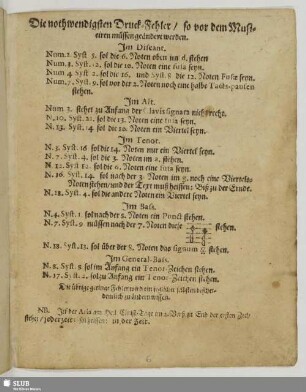 Die nothwendigsten Druck-Fehler/ so vor dem Musi-
ciren müssen geändert werden.
Im Discant.
Num. 2. Syst. 5. sol die 6. Noten oben im d. stehen
Num. 3. Syst. 12. sol die 10. Noten eine fusa seyn.
Num. 4. Syst. 2. sol die 16. und Syst. 8. die 12. Noten Fusæ seyn.
Num. 7. Syst. 9. sol vor der 2. Noten noch eine halbe Tacts-pausen
stehen.
Im Alt.
Num. 3. stehet zu Anfang der clavis signata nicht recht.
N. 10. Syst. 21. sol die 13. Noten eine fusa seyn.
N. 13. Syst. 14. sol die 10. Noten ein Viertel seyn.
Im Tenor.
N. 5. Syst. 16. sol die 14. Noten nur ein Viertel seyn.
N. 7. Syst. 4. sol die 3. Noten im a. stehen.
N. 12. Syst. 12. sol die 6. Noten eine fusa seyn.
N. 16. Syst. 14. sol nach der 3. Noten im g. noch eine Viertels-
Noten stehen/ und der Text muß heissen: Biß zu der Ende.
N. 18. Syst. 4. sol die andere Noten ein Viertel seyn.
Im Bass.
N. 4. Syst. 1. sol nach der 2. Noten ein Punct stehen.
N. 7. Syst. 9. müssen nach der 7. Noten diese stehen.
N. 13. Syst. 13. sol über der 8. Noten das signum stehen.
Im General-Bass.
N. 8. Syst. 8. sol im Anfang ein Tenor-Zeichen stehen.
N. 17. Syst. 2. sol zu Anfang ein Tenor-Zeichen stehen.
Die übrige geringe Fehler
NB. In der Aria am
stehet/ jederzeit: in der Zeit.